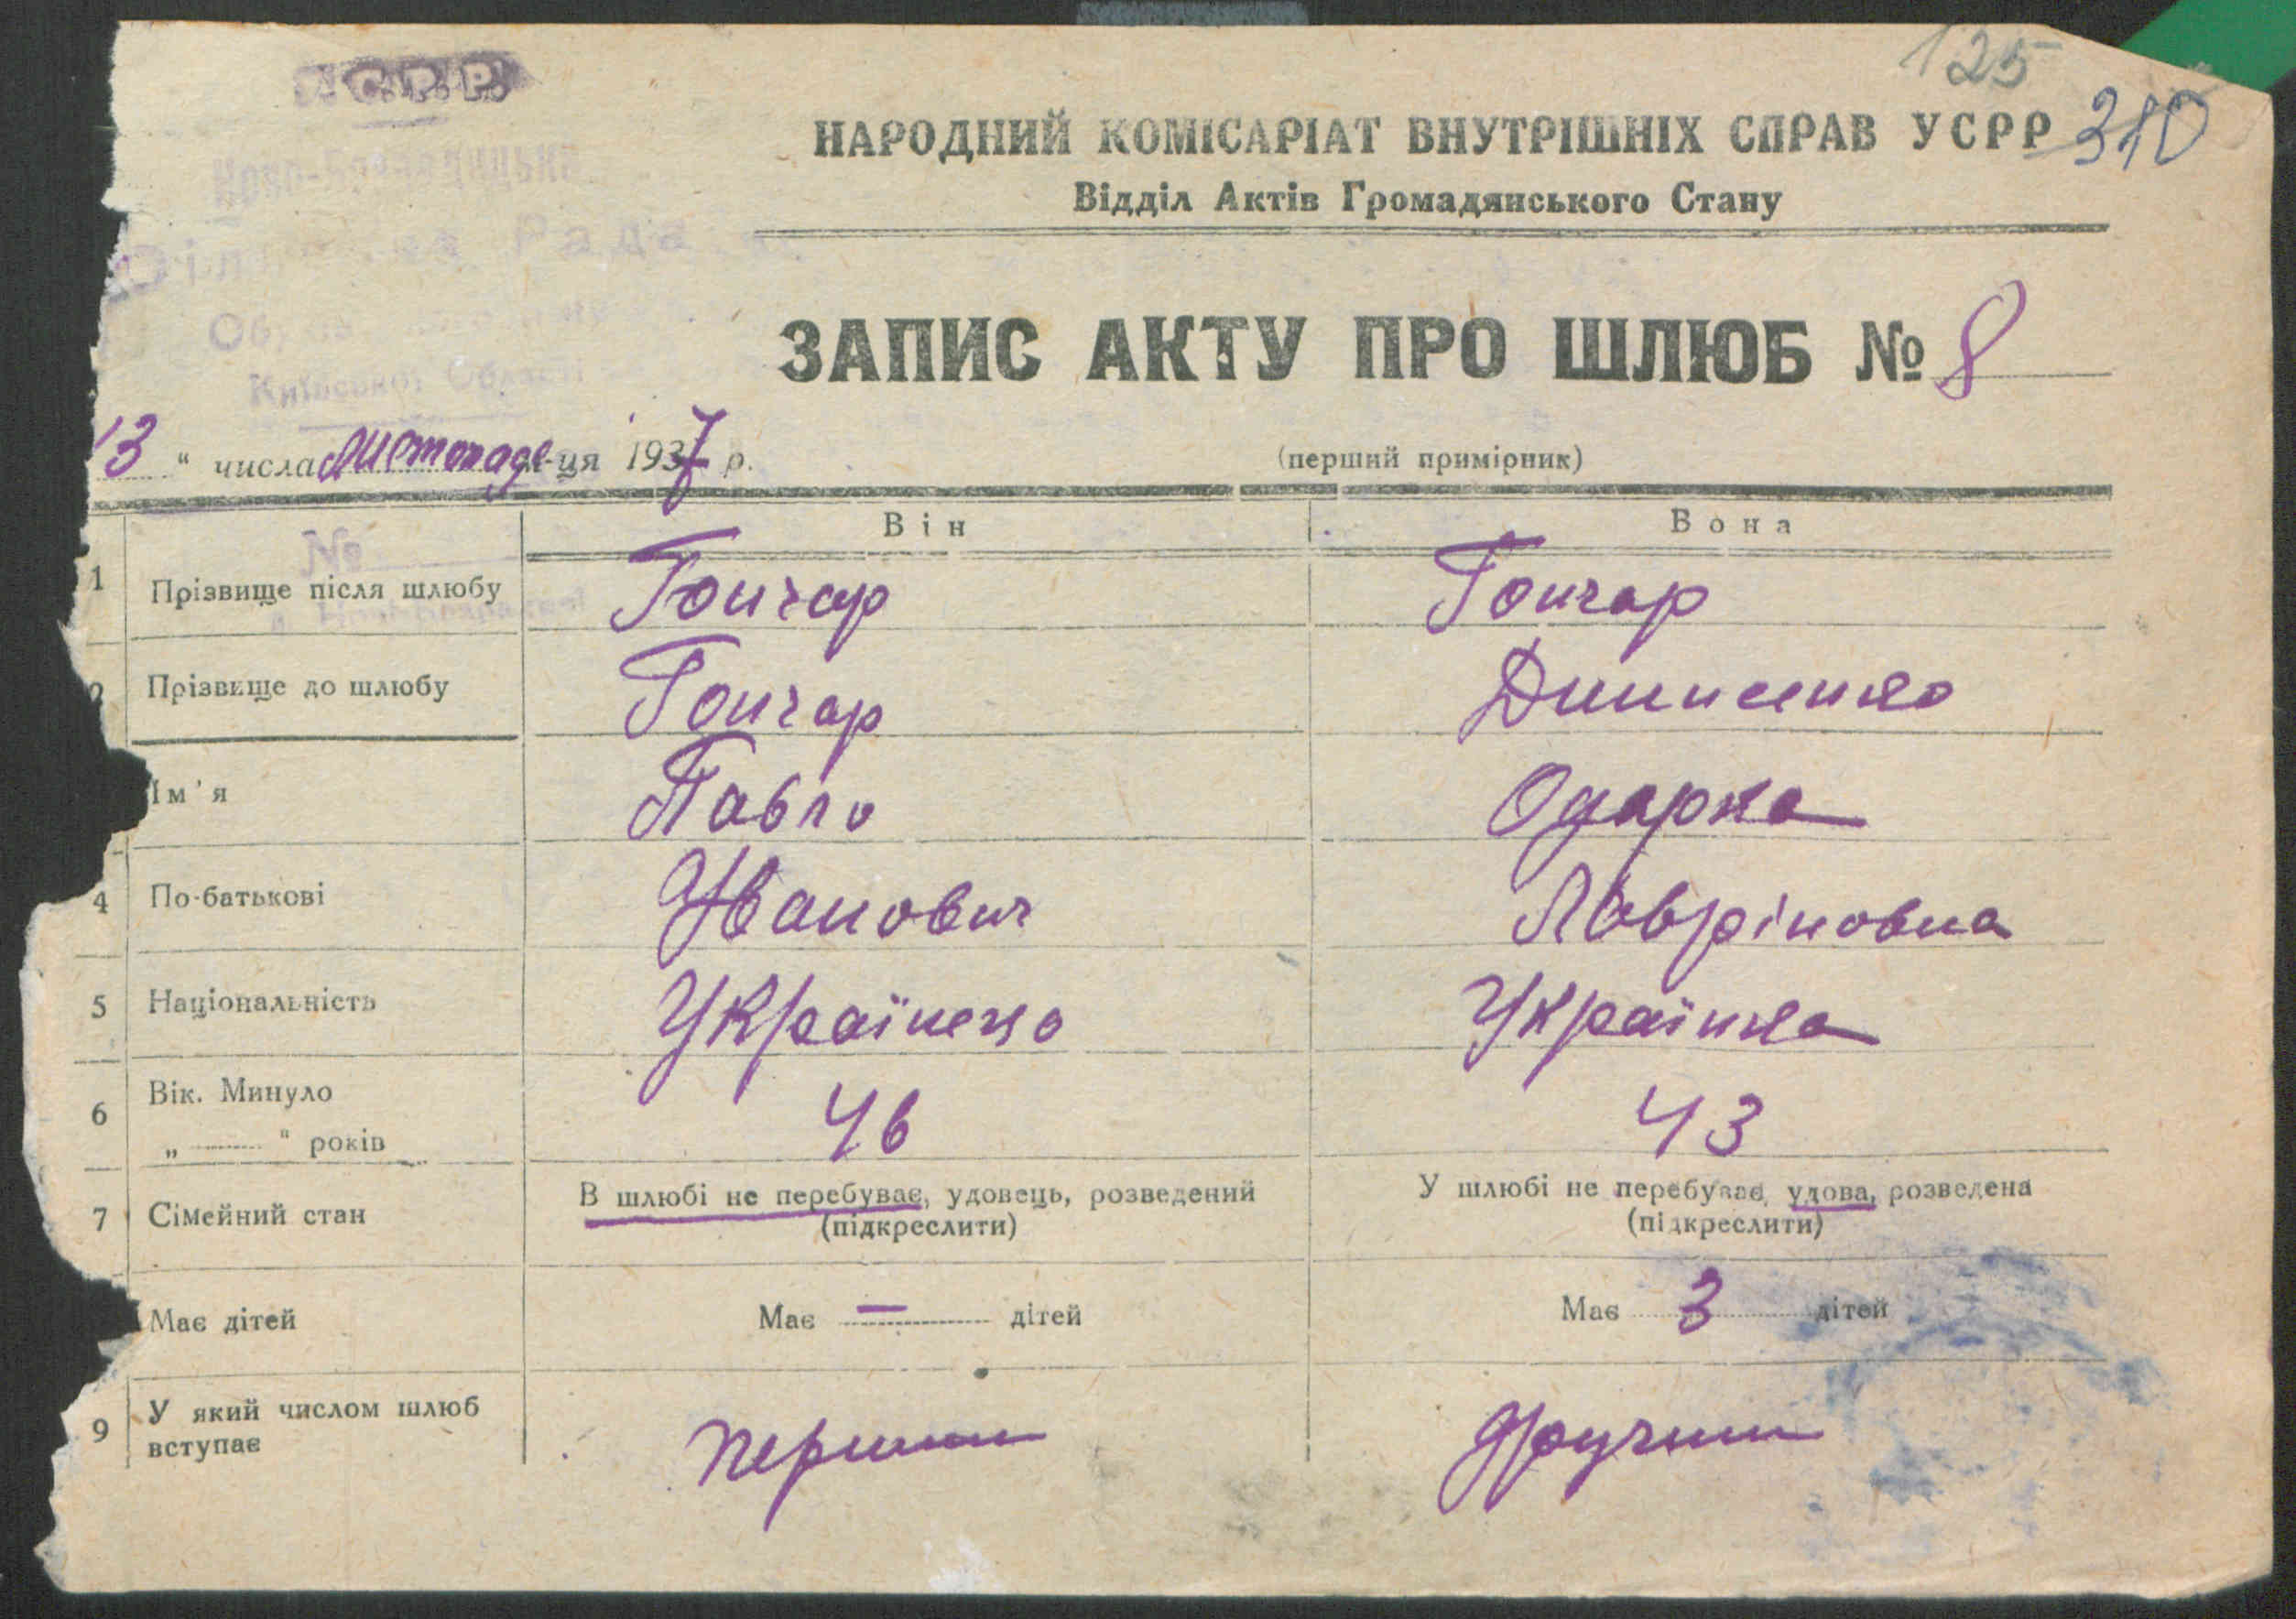 С.Р.Р.
125
НАРОДНИЙ КОМІСАРІАТ ВНУТРІШНІХ СПРАВ УСРР 310
Відділ Актів Громадянського Стану
Рада
Київської Області
ЗАПИС АКТУ ПРО ШЛЮБ № 8
13 " числа листопада м-ця 1937 р.
(перший примірник)
№
Він Вона
1 Прізвище після шлюбу Гончар Гончар
2 Прізвище до шлюбу Гончар Динисенко
Ім'я Павло Одарка
4 По-батькові Иванович Лавріновна
5 Національність Українець Українка
6 Вік. Минуло
„ " років 46 43
7 Сімейний стан В шлюбі не перебуває, удовець, розведений У шлюбі не перебуває, удова, розведена
(підкреслити) (підкреслити)
Має дітей Має — дітей Має 3 дітей
9 У який числом шлюб
вступає первиш другиш